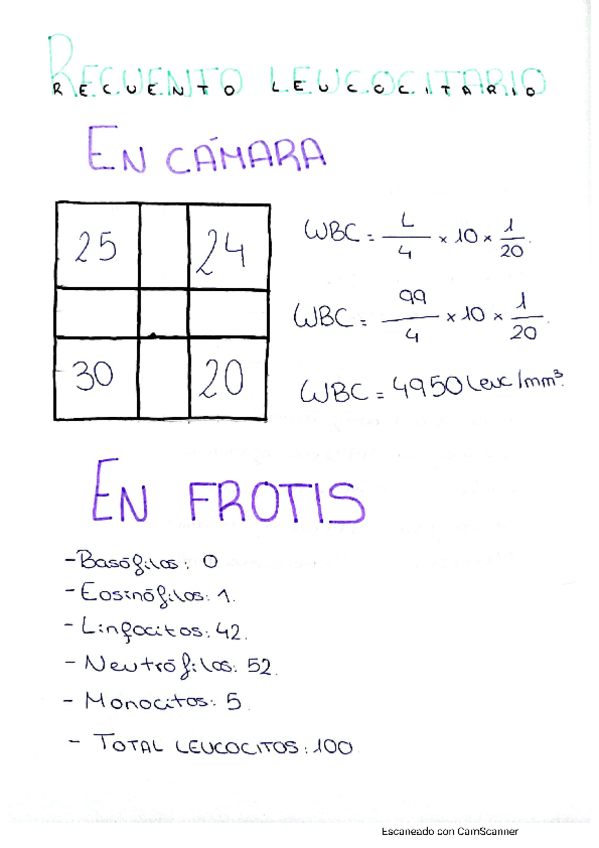 RECUENTO LEUCOCITARIO
EN CÁMARA
25 24
30 20
WBC = L/4 x 10 x 1/20.
WBC = 99/4 x 10 x 1/20.
WBC = 4950 Leuc/mm³.
EN FROTIS
- Basófilos: 0
- Eosinófilos: 1.
- Linfocitos: 42.
- Neutrófilos: 52.
- Monocitos: 5
- TOTAL LEUCOCITOS: 100
Escaneado con CamScanner